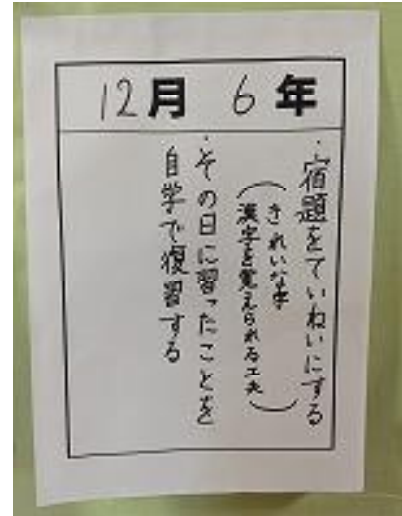 12月 6年
・宿題をていねいにする
（きれいな字
漢字を覚えられる工夫）
・その日に習ったことを
自学で復習する